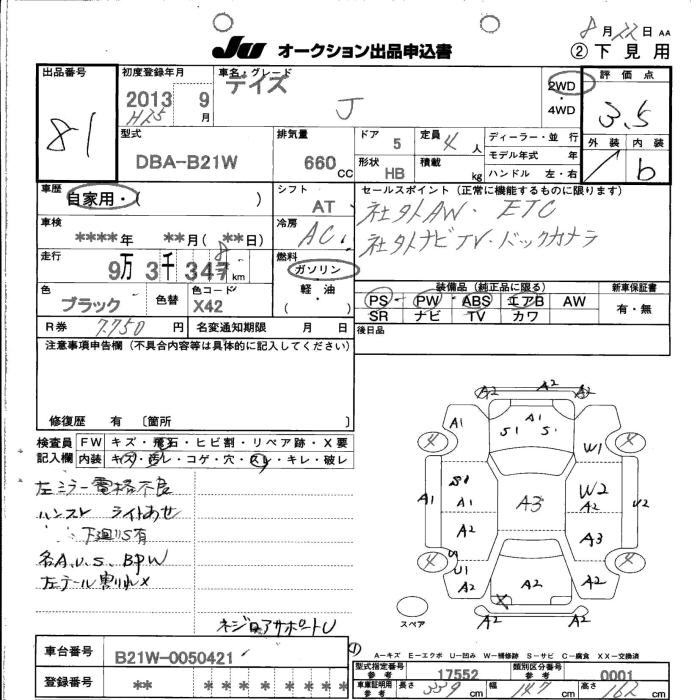 8月22日 AA
JU オークション出品申込書 ②下見用
出品番号 81
初度登録年月 2013 9月 H25
車名・グレード デイズ J
2WD・4WD
評価点 3.5
外装 内装 b
型式 DBA-B21W
排気量 660CC
ドア 5 定員 4人
形状 HB 積載 kg
ディーラー・並行
モデル年式 年
ハンドル 左・右
車歴 自家用・( )
シフト AT
セールスポイント(正常に機能するものに限ります)
社外AW・ETC
社外ナビTV・バックカメラ
車検 ****年 **月(**日)
冷房 AC
走行 9万3千347km 8
燃料 ガソリン 軽・油 ( )
色 ブラック 色替 色コード X42
装備品(純正品に限る) 新車保証書
PS PW ABS エアB AW 有・無
SR ナビ TV カワ
R券 7.750円 名変通知期限 月 日
後日品
注意事項申告欄(不具合内容等は具体的に記入してください)
修復歴 有 〔箇所 〕
検査員記入欄
FW キズ・飛石・ヒビ割・リペア跡・X要
内装 キズ・汚レ・コゲ・穴・スレ・キレ・破レ
左ミラー電格不良
ハンスレ ライトあせ
下廻りS有
各A.U.S. BPW
左テール割れX
ネジロアサポートU
A2 A2 A2
A1 A1 S1 S1
4 4
W1
A1 A1 A3 W2 A2 U2
A2 A3
4 4
U1 A2 A2 A2
X
A2 A2
スペア
A-キズ E-エクボ U-凹み W-補修跡 S-サビ C-腐食 XX-交換済
車台番号 B21W-0050421
登録番号 ** * * * * * * *
型式指定番号 参考 17552 類別区分番号 参考 0001
車庫証明用 参考 長さ 339cm 幅 147cm 高さ 162cm